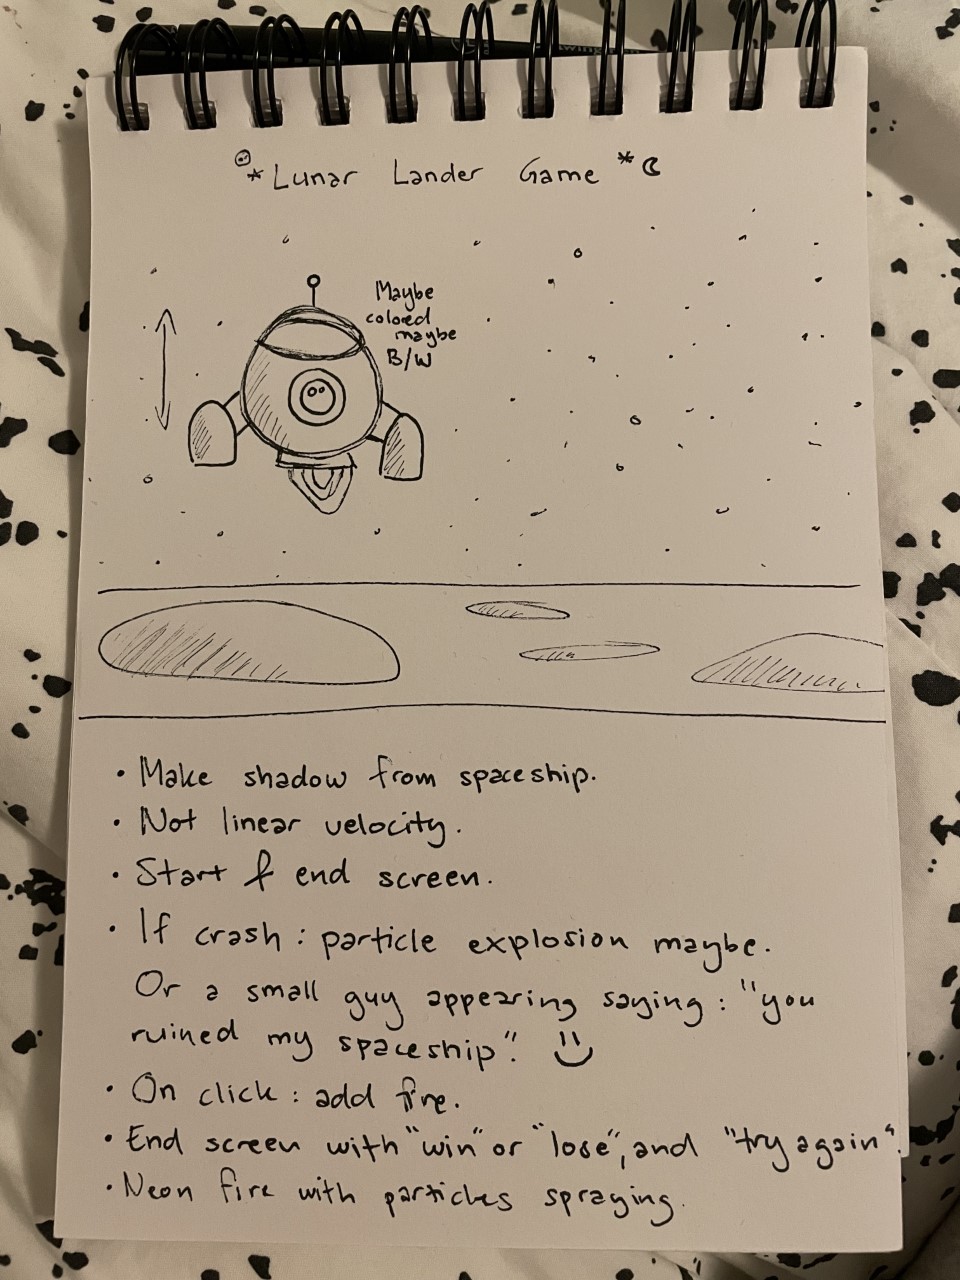 * Lunar Lander Game *
Maybe
colored
maybe
B/W
• Make shadow from spaceship.
• Not linear velocity.
• Start & end screen.
• If crash : particle explosion maybe.
Or a small guy appearing saying : "you
ruined my spaceship".
• On click : add fire.
• End screen with "win" or "lose", and "try again".
• Neon fire with particles spraying.